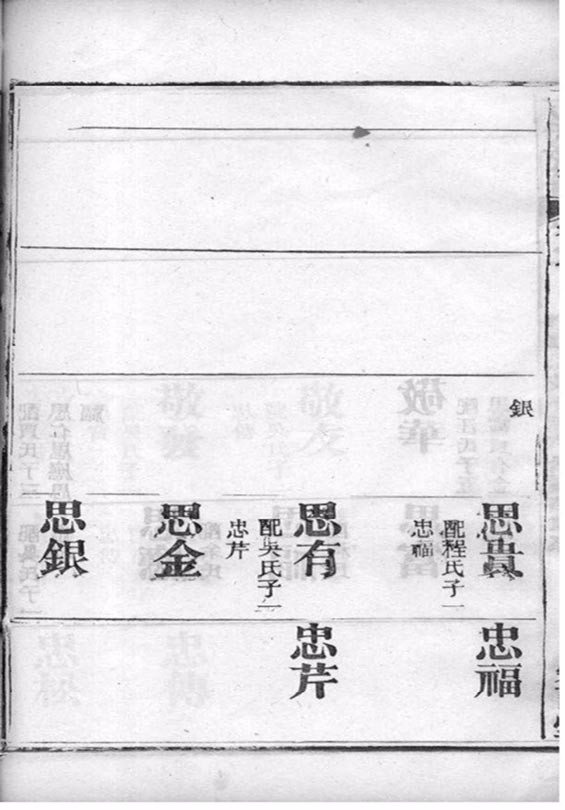 銀
思貴
配程氏子一
忠福
思有
配吳氏子一
忠芹
思金
思銀
忠福
忠芹